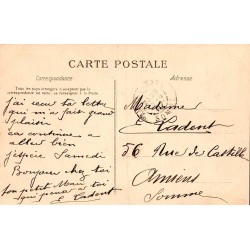 CARTE POSTALE
Correspondance
Adresse
Tous les pays étrangers n'acceptent pas la
correspondance au recto, se renseigner à la Poste
j'ai reçu ta lettre
qui m'a fait grand
plaisir
ça continue a
aller bien
j'espère Samedi
Bonjour chez toi
ton petit Mari
qui pense à toi
E Cadent
Madame
Cadent
56 Rue de Castille
Amiens
Somme